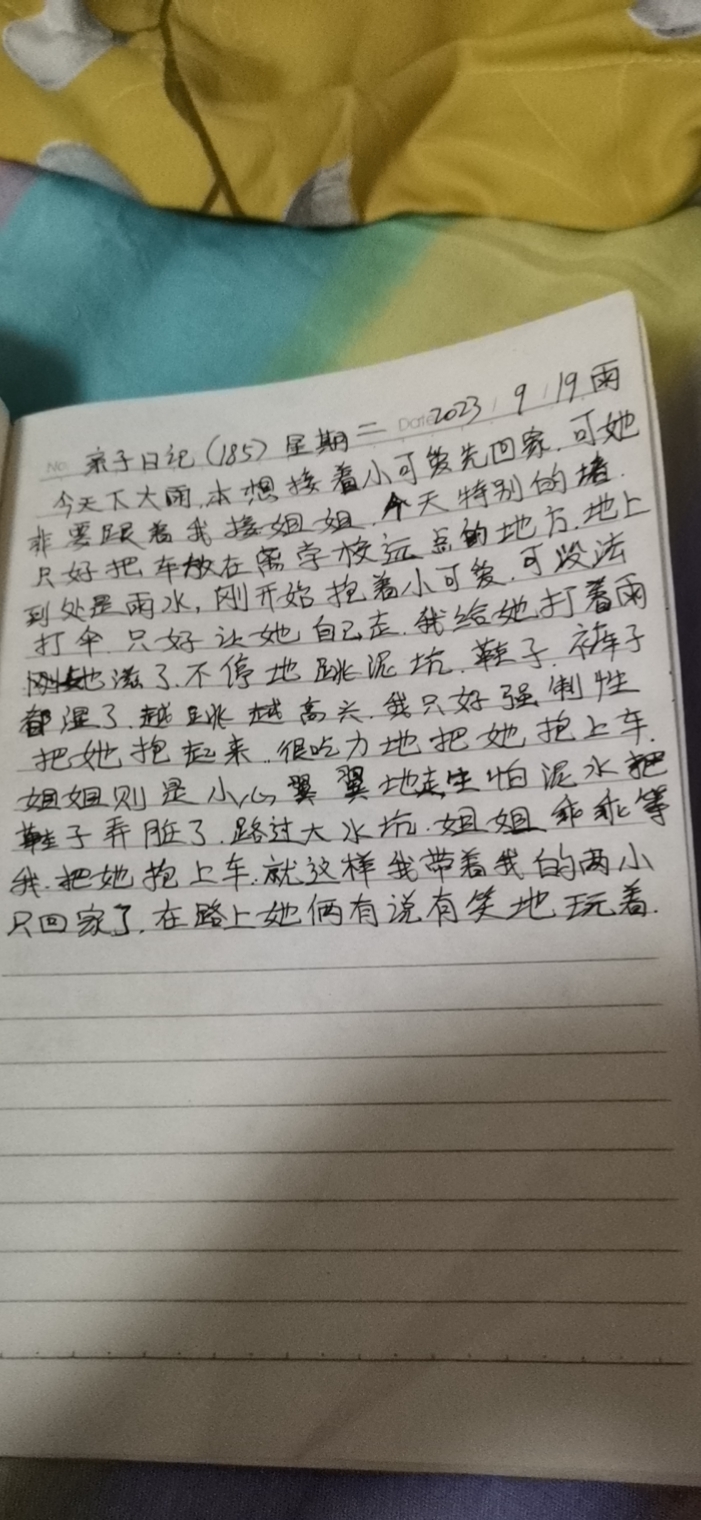 No. 亲子日记(185) 星期二 Date 2023 / 9 / 19 雨
今天下大雨,本想接着小可爱先回家.可她
非要跟着我接姐姐.今天特别的堵.
只好把车放在离学校远点的地方.地上
到处是雨水,刚开始抱着小可爱.可没法
打伞.只好让她自己走.我给她打着雨
她滋了.不停地跳泥坑.鞋子.裤子
都湿了.越跳越高兴.我只好强制性
把她抱起来.很吃力地把她抱上车.
姐姐则是小心翼翼地走生怕泥水把
鞋子弄脏了.路过大水坑.姐姐乖乖等
我.把她抱上车.就这样我带着我的两小
只回家了.在路上她俩有说有笑地玩着.